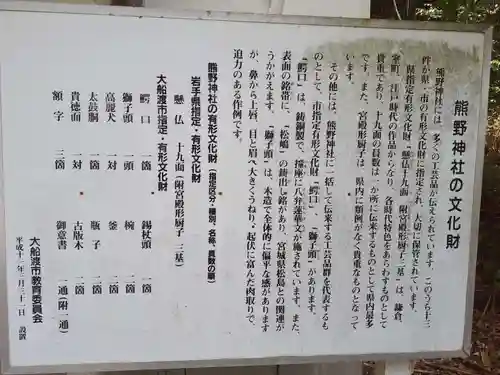 熊野神社の文化財
熊野神社には、多くの工芸品が伝えられています。このうち十三
件が県、市の有形文化財に指定され、大切に保管されています。
県指定有形文化財「懸仏十九面 附宮殿形厨子三基」は、鎌倉、
室町、江戸時代の作品からなり、各時代特色をあらわすものとして
貴重であり、十九面の員数は一か所に伝来するものとして県内最多
です。また、宮殿形厨子は、県内に類例がなく貴重なものとなって
います。
その他には、熊野神社に一括して伝来する工芸品群を代表するも
のとして、市指定有形文化財「鰐口」、「獅子頭」があります。
「鰐口」は、鋳銅製で、撞座に八弁蓮華文が施されています。また、
表面の銘帯に、「松嶋」の鋳出し銘があり、宮城県松島との関連が
うかがえます。「獅子頭」は、木造で全体的に偏平な感があります
が、鼻から上唇、目と眉へ大きくうねり、起伏に富んだ肉取りで
迫力のある作例です。
熊野神社の有形文化財(指定区分・種別、名称、員数の順)
岩手県指定・有形文化財
懸仏 十九面(附宮殿形厨子 三基)
大船渡市指定・有形文化財
鰐口 一箇 錫杖頭 一箇
獅子頭 一頭 椀 二箇
高麗犬 一対 釜 一箇
太鼓胴 一箇 瓶子 一箇
貴徳面 一対 古版木 二箇
額字 三箇 御意書 一通(附一通)
平成十二年三月三十一日 設置
大船渡市教育委員会